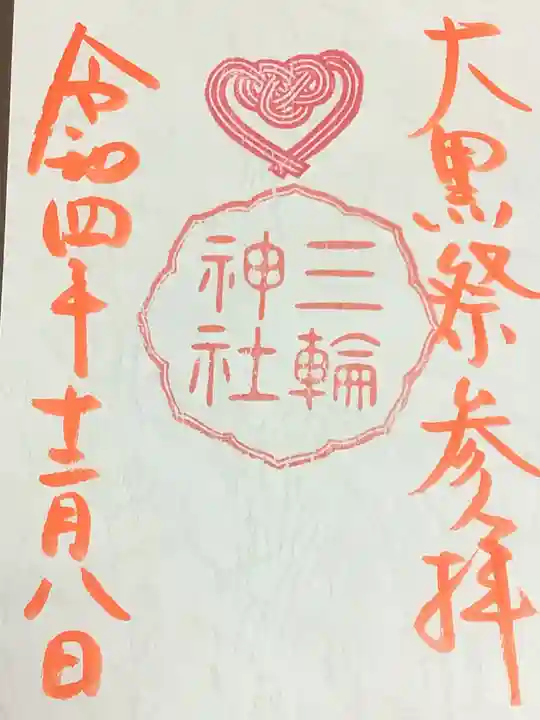 大黒祭参拝
三輪
神社
令和四年十二月八日